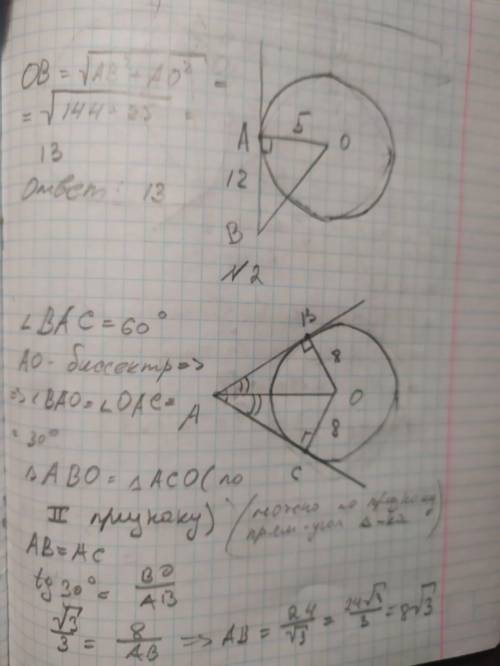 OB = √AB² + AO² =
= √144 + 25 =
13
Ответ: 13
A
5
O
12
B
№2
∠BAC = 60°
AO - биссектр =>
=> ∠BAO = ∠OAC =
= 30°
B
8
A
O
8
C
△ABO = △ACO (по
II признаку) (можно по признаку
прям-угол △-ка)
AB = AC
tg 30° = BO/AB
√3/3 = 8/AB => AB = 24/√3 = 24√3/3 = 8√3